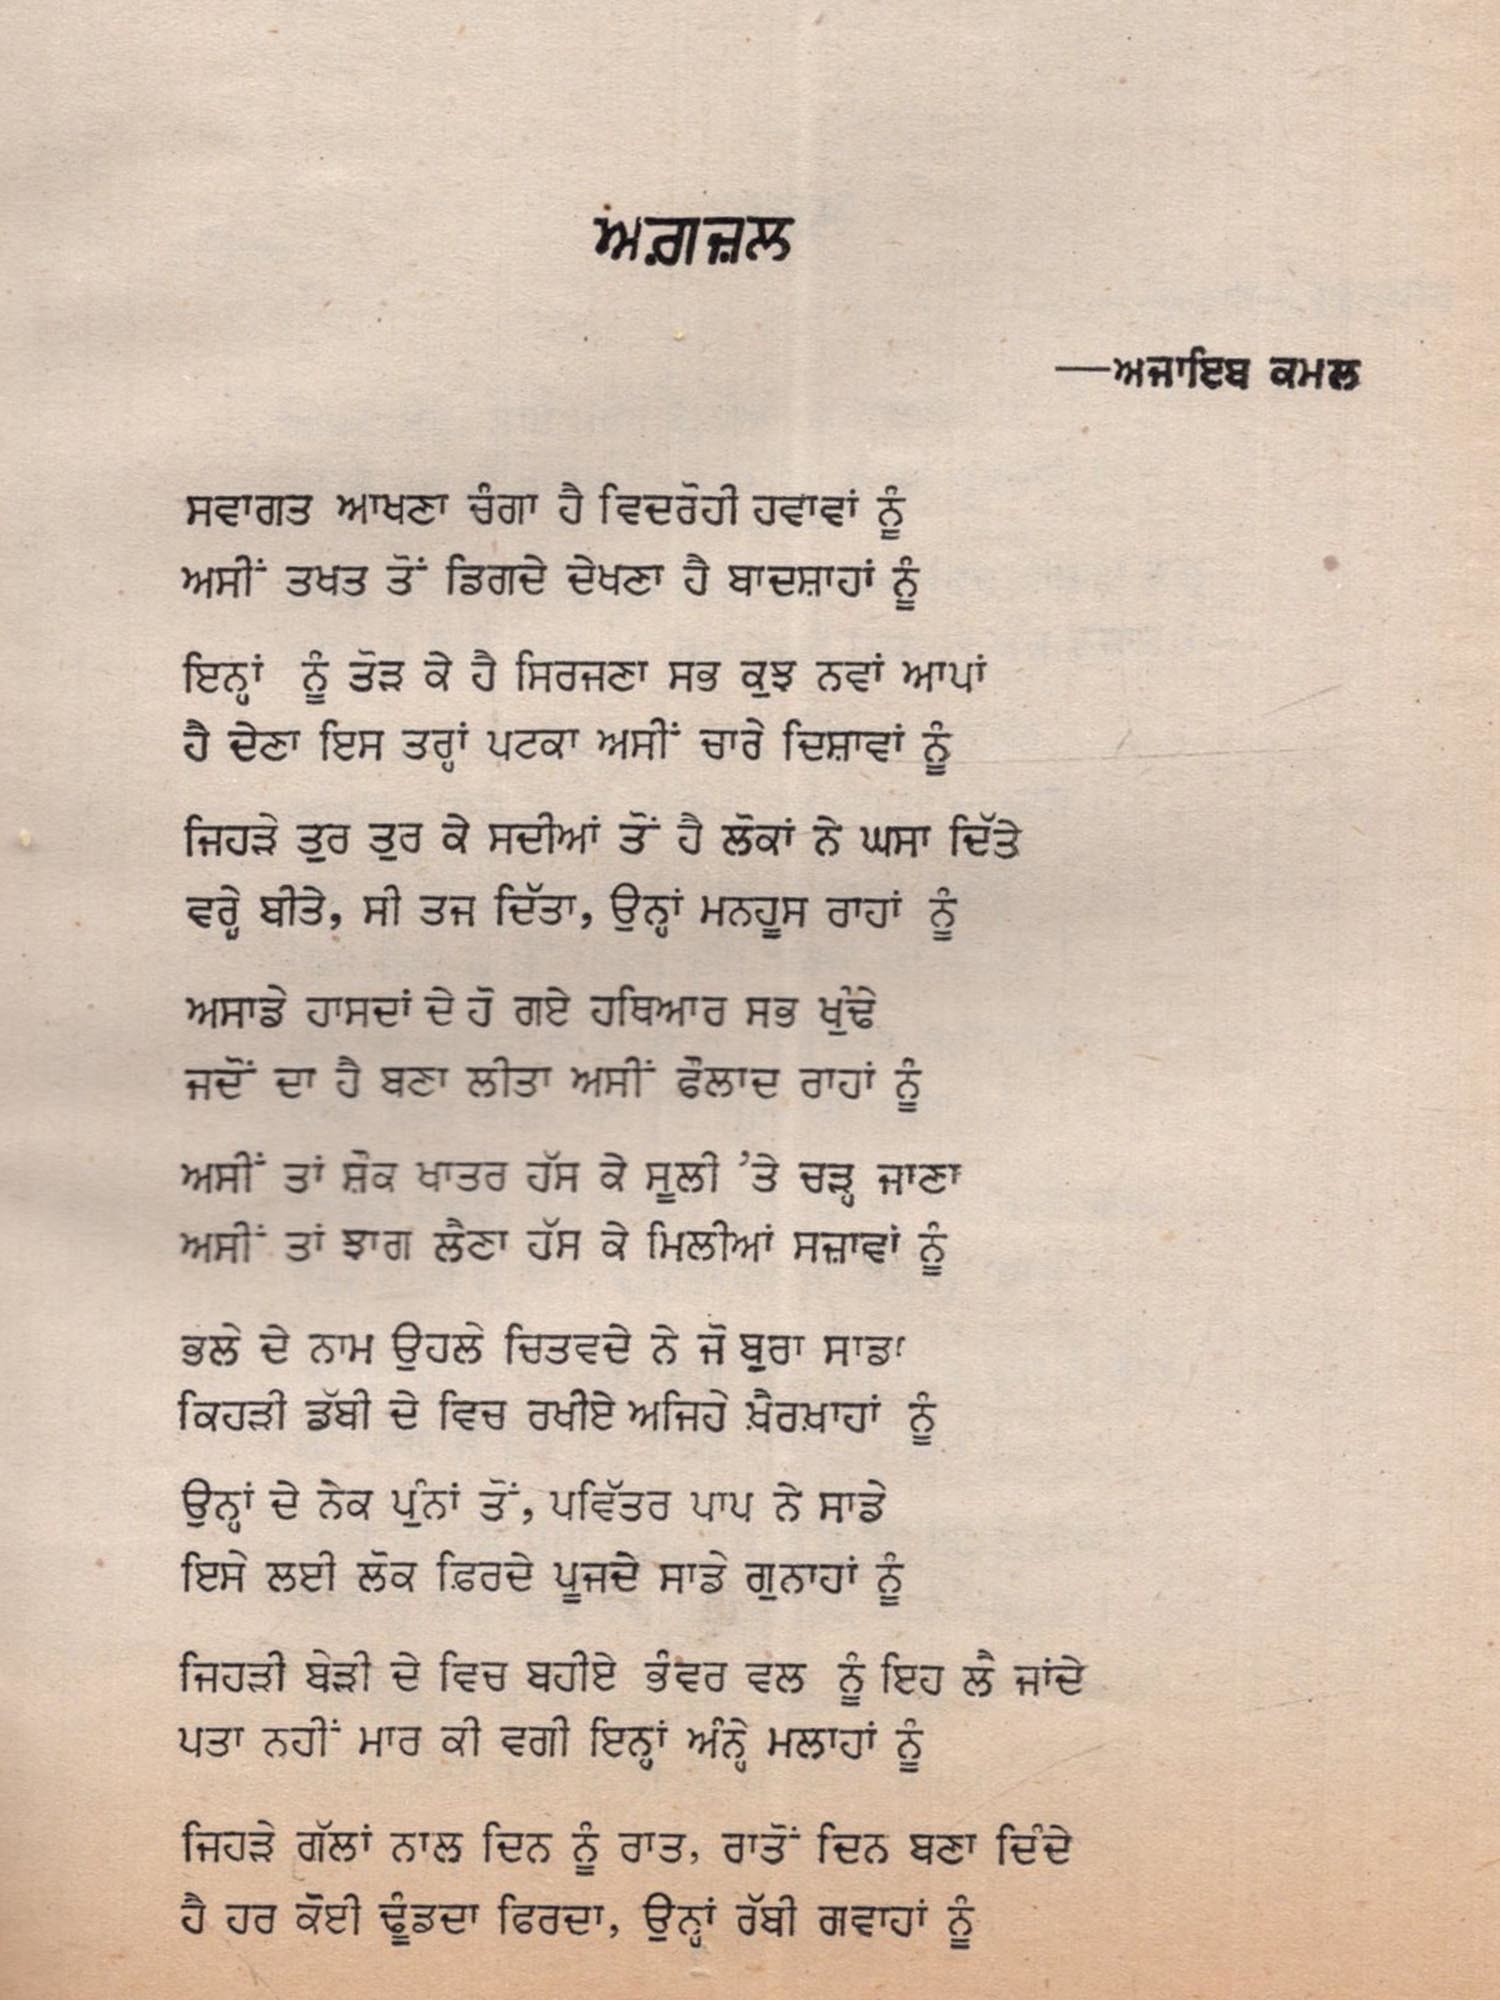 ਅਗ਼ਜ਼ਲ
—ਅਜਾਇਬ ਕਮਲ
ਸਵਾਗਤ ਆਖਣਾ ਚੰਗਾ ਹੈ ਵਿਦਰੋਹੀ ਹਵਾਵਾਂ ਨੂੰ
ਅਸੀਂ ਤਖਤ ਤੋਂ ਡਿਗਦੇ ਦੇਖਣਾ ਹੈ ਬਾਦਸ਼ਾਹਾਂ ਨੂੰ
ਇਨ੍ਹਾਂ ਨੂੰ ਤੋੜ ਕੇ ਹੈ ਸਿਰਜਣਾ ਸਭ ਕੁਝ ਨਵਾਂ ਆਪਾਂ
ਹੈ ਦੇਣਾ ਇਸ ਤਰ੍ਹਾਂ ਪਟਕਾ ਅਸੀਂ ਚਾਰੇ ਦਿਸ਼ਾਵਾਂ ਨੂੰ
ਜਿਹੜੇ ਤੁਰ ਤੁਰ ਕੇ ਸਦੀਆਂ ਤੋਂ ਹੈ ਲੋਕਾਂ ਨੇ ਘਸਾ ਦਿੱਤੇ
ਵਰ੍ਹੇ ਬੀਤੇ, ਸੀ ਤਜ ਦਿੱਤਾ, ਉਨ੍ਹਾਂ ਮਨਹੂਸ ਰਾਹਾਂ ਨੂੰ
ਅਸਾਡੇ ਹਾਸਦਾਂ ਦੇ ਹੋ ਗਏ ਹਥਿਆਰ ਸਭ ਖੁੰਢੇ
ਜਦੋਂ ਦਾ ਹੈ ਬਣਾ ਲੀਤਾ ਅਸੀਂ ਫੌਲਾਦ ਰਾਹਾਂ ਨੂੰ
ਅਸੀਂ ਤਾਂ ਸ਼ੌਕ ਖਾਤਰ ਹੱਸ ਕੇ ਸੂਲੀ ’ਤੇ ਚੜ੍ਹ ਜਾਣਾ
ਅਸੀਂ ਤਾਂ ਝਾਗ ਲੈਣਾ ਹੱਸ ਕੇ ਮਿਲੀਆਂ ਸਜ਼ਾਵਾਂ ਨੂੰ
ਭਲੇ ਦੇ ਨਾਮ ਉਹਲੇ ਚਿਤਵਦੇ ਨੇ ਜੋ ਬੁਰਾ ਸਾਡਾ
ਕਿਹੜੀ ਡੱਬੀ ਦੇ ਵਿਚ ਰਖੀਏ ਅਜਿਹੇ ਖ਼ੈਰਖ਼ਾਹਾਂ ਨੂੰ
ਉਨ੍ਹਾਂ ਦੇ ਨੇਕ ਪੁੰਨਾਂ ਤੋਂ, ਪਵਿੱਤਰ ਪਾਪ ਨੇ ਸਾਡੇ
ਇਸੇ ਲਈ ਲੋਕ ਫ਼ਿਰਦੇ ਪੂਜਦੇ ਸਾਡੇ ਗੁਨਾਹਾਂ ਨੂੰ
ਜਿਹੜੀ ਬੇੜੀ ਦੇ ਵਿਚ ਬਹੀਏ ਭੰਵਰ ਵਲ ਨੂੰ ਇਹ ਲੈ ਜਾਂਦੇ
ਪਤਾ ਨਹੀਂ ਮਾਰ ਕੀ ਵਗੀ ਇਨ੍ਹਾਂ ਅੰਨ੍ਹੇ ਮਲਾਹਾਂ ਨੂੰ
ਜਿਹੜੇ ਗੱਲਾਂ ਨਾਲ ਦਿਨ ਨੂੰ ਰਾਤ, ਰਾਤੋਂ ਦਿਨ ਬਣਾ ਦਿੰਦੇ
ਹੈ ਹਰ ਕੋਈ ਢੂੰਡਦਾ ਫਿਰਦਾ, ਉਨ੍ਹਾਂ ਰੱਬੀ ਗਵਾਹਾਂ ਨੂੰ